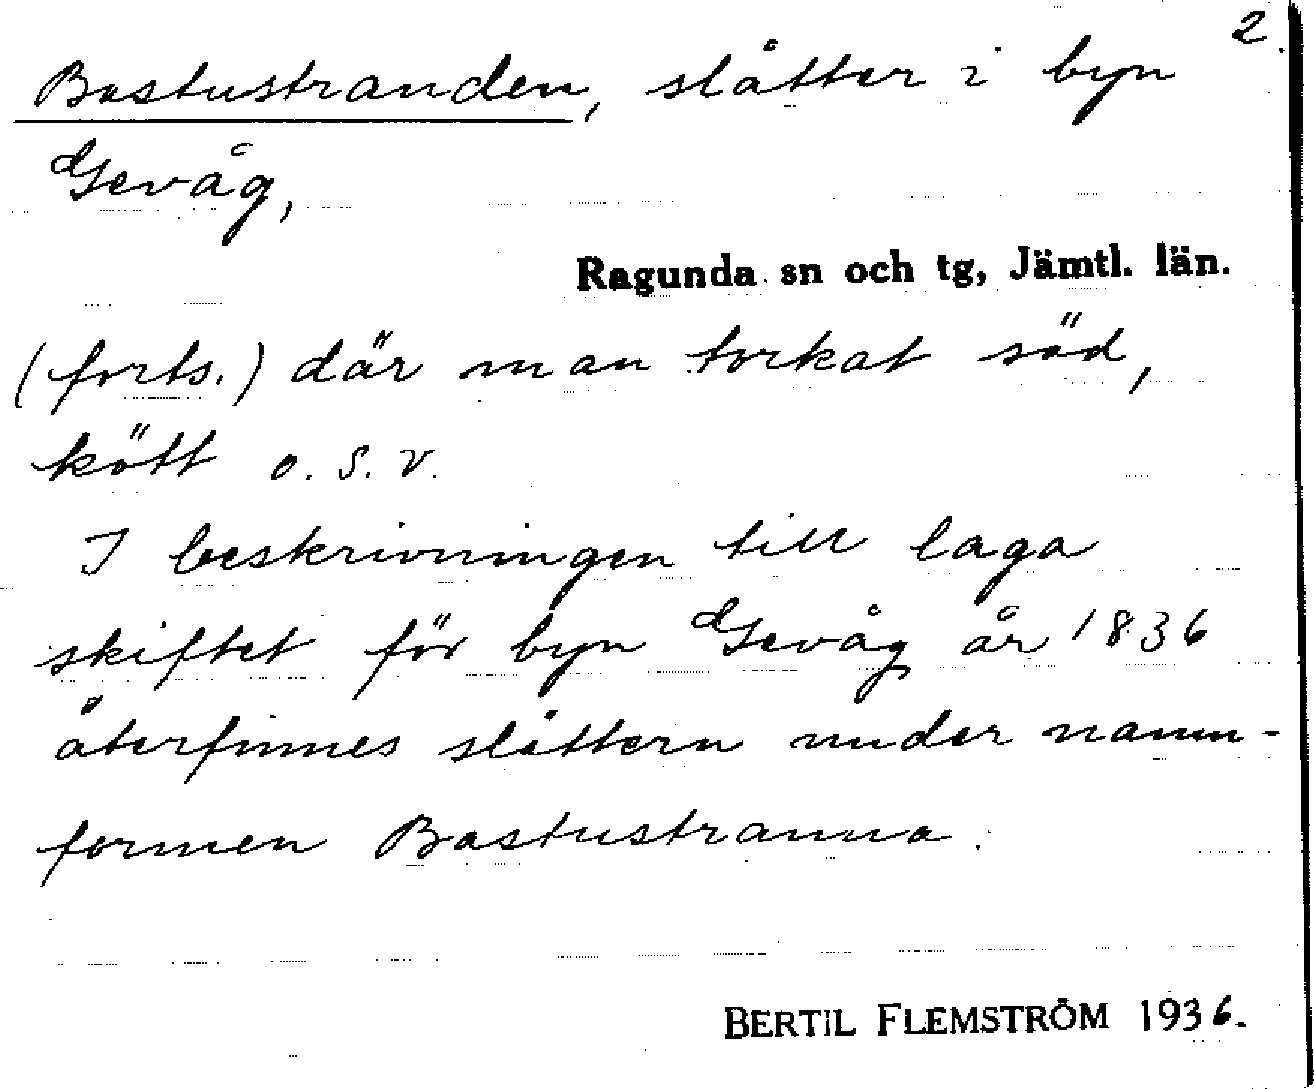 2.
Bastustranden, slåtter i byn
Gevåg,
Ragunda sn och tg, Jämtl. län.
(forts.) där man torkat säd,
kött o. s. v.
I beskrivningen till laga
skiftet för byn Gevåg år 1836
återfinnes slåttern under namn-
formen Bastustranna.
BERTIL FLEMSTRÖM 1936.